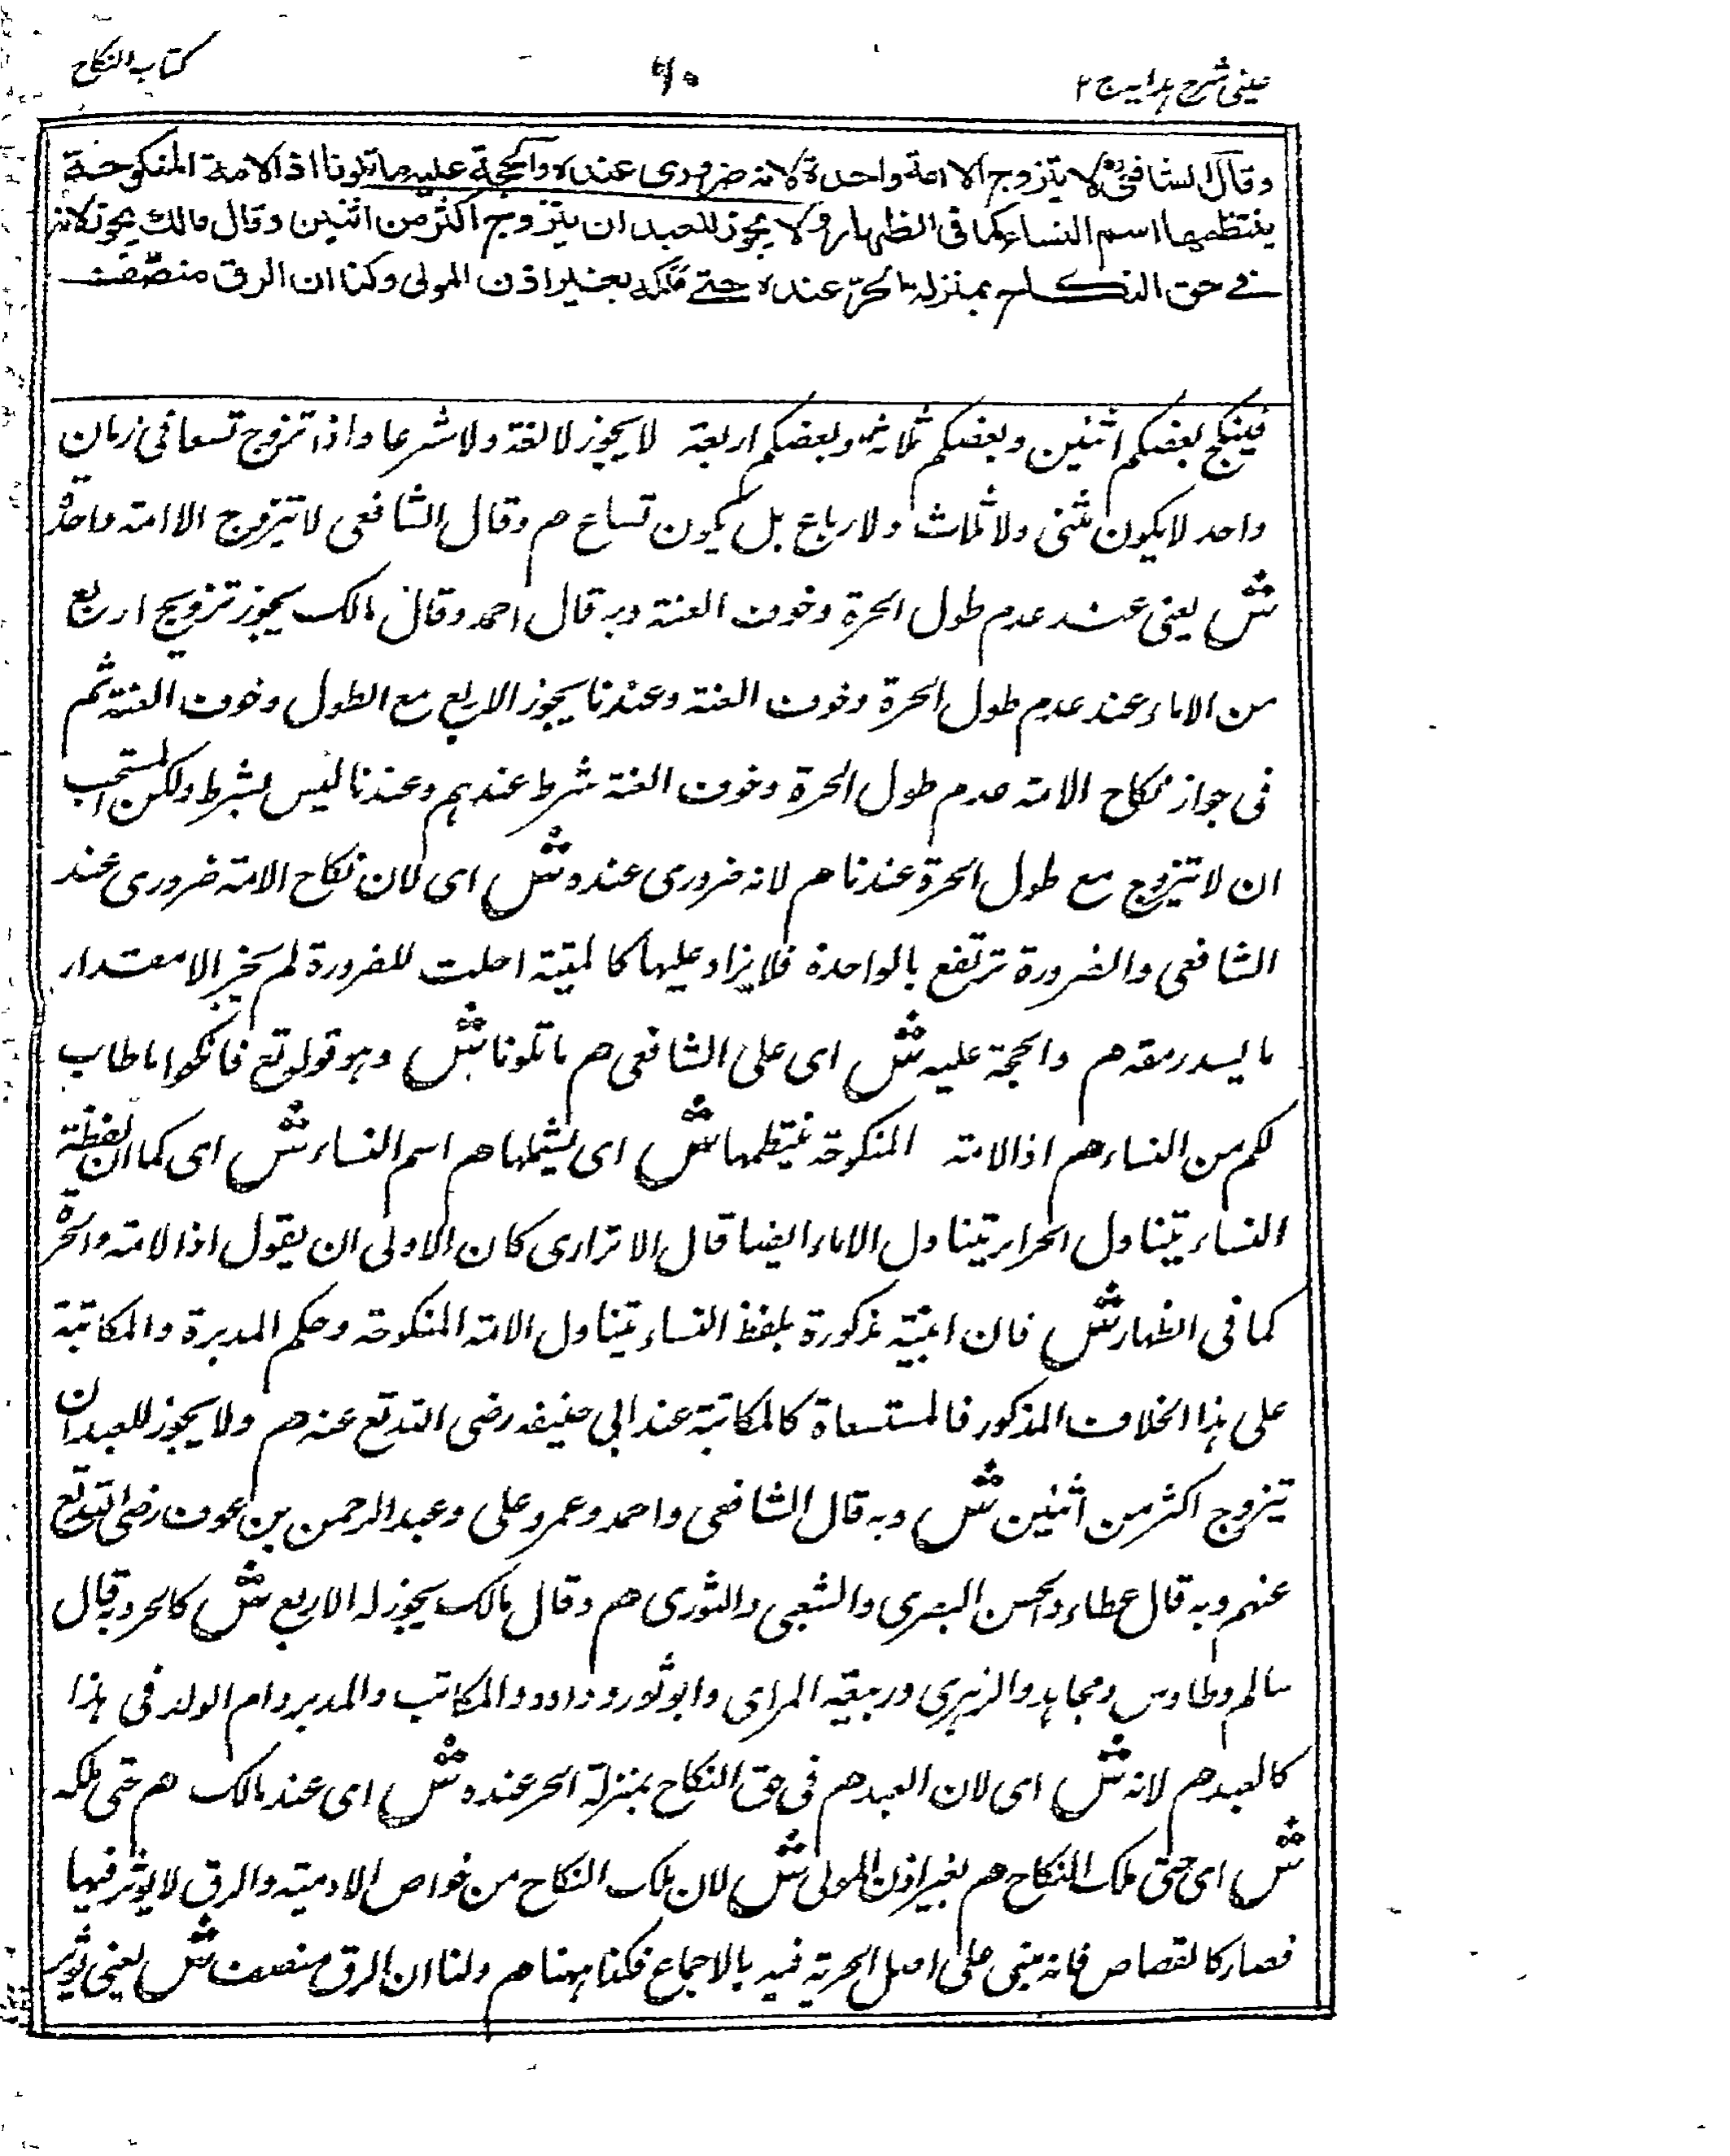 عینی شرح ہدایہ ج ۲
۶۰
كتاب النكاح
وقال الشافعي لا يتزوج الا امة واحدة لانه ضروري عنده والحجة عليه ما تلونا اذ الامة المنكوحة
ينتظمها اسم النساء كما في الظهار ولا يجوز للعبد ان يتزوج اكثر من اثنين وقال مالك يجوز لانه
في حق النكاح بمنزلة الحر عنده حتى ملكه بغير اذن المولى ولنا ان الرق منصف
فينكح بعضكم اثنين وبعضكم ثلاثة وبعضكم اربعة لا يجوز لا لغة ولا شرعا واذا تزوج تسعا في زمان
واحد لا يكون مثنى ولا ثلاث ولا رباع بل يكون تساع م وقال الشافعي لا يتزوج الا امة واحدة
ش يعني عند عدم طول الحرة وخوف العنة وبه قال احمد وقال مالك يجوز تزويج اربع
من الاماء عند عدم طول الحرة وخوف العنة وعندنا يجوز الاربع مع الطول وخوف العنة ثم
في جواز نكاح الامة عدم طول الحرة وخوف العنة شرط عندهم وعندنا ليس بشرط ولكن المستحب
ان لا يتزوج مع طول الحرة عندنا م لانه ضروري عنده ش اى لان نكاح الامة ضروري عند
الشافعي والضرورة ترتفع بالواحدة فلا يزاد عليها كالميتة احلت للضرورة لم يجز الا مقدار
ما يسد رمقه م والحجة عليه ش اى على الشافعي م ما تلونا ش وهو قوله تع فانكحوا ما طاب
لكم من النساء م اذ الامة المنكوحة ينتظمها ش اى يشملها م اسم النساء ش اى كما ان لفظة
النساء يتناول الحرار يتناول الاماء ايضا قال الاترارى كان الاولى ان يقول اذ الامة والحرة
كما في الظهار ش فان اثبته مذكورة بلفظ النساء يتناول الامة المنكوحة وحكم المدبرة والمكاتبة
على هذا الخلاف المذكور فالمستسعاة كالمكاتبة عند ابي حنيفه رضى الله تع عنه م ولا يجوز للعبد ان
يتزوج اكثر من اثنين ش وبه قال الشافعي واحمد وعمر وعلى وعبد الرحمن بن عوف رضى الله تع
عنهم وبه قال عطاء والحسن البصري والشعبي والثوري م وقال مالك يجوز له الاربع ش كالحر وبه قال
سالم وطاوس ومجاهد والزهري وربيعة المراى وابو ثور وداود والمكاتب والمدبر وام الولد في هذا
كالعبد م لانه ش اى لان العبد م في حق النكاح بمنزلة الحر عنده ش اى عند مالك م حتى ملكه
ش اى حتى ملك النكاح م بغير اذن المولى ش لان ملك النكاح من خواص الادمية والرق لا يوثر فيها
فصار كالقصاص فانه مبنى على اصل الحرية فيه بالاجماع فكذا ههنا م ولنا ان الرق منصف ش يعني يوثر